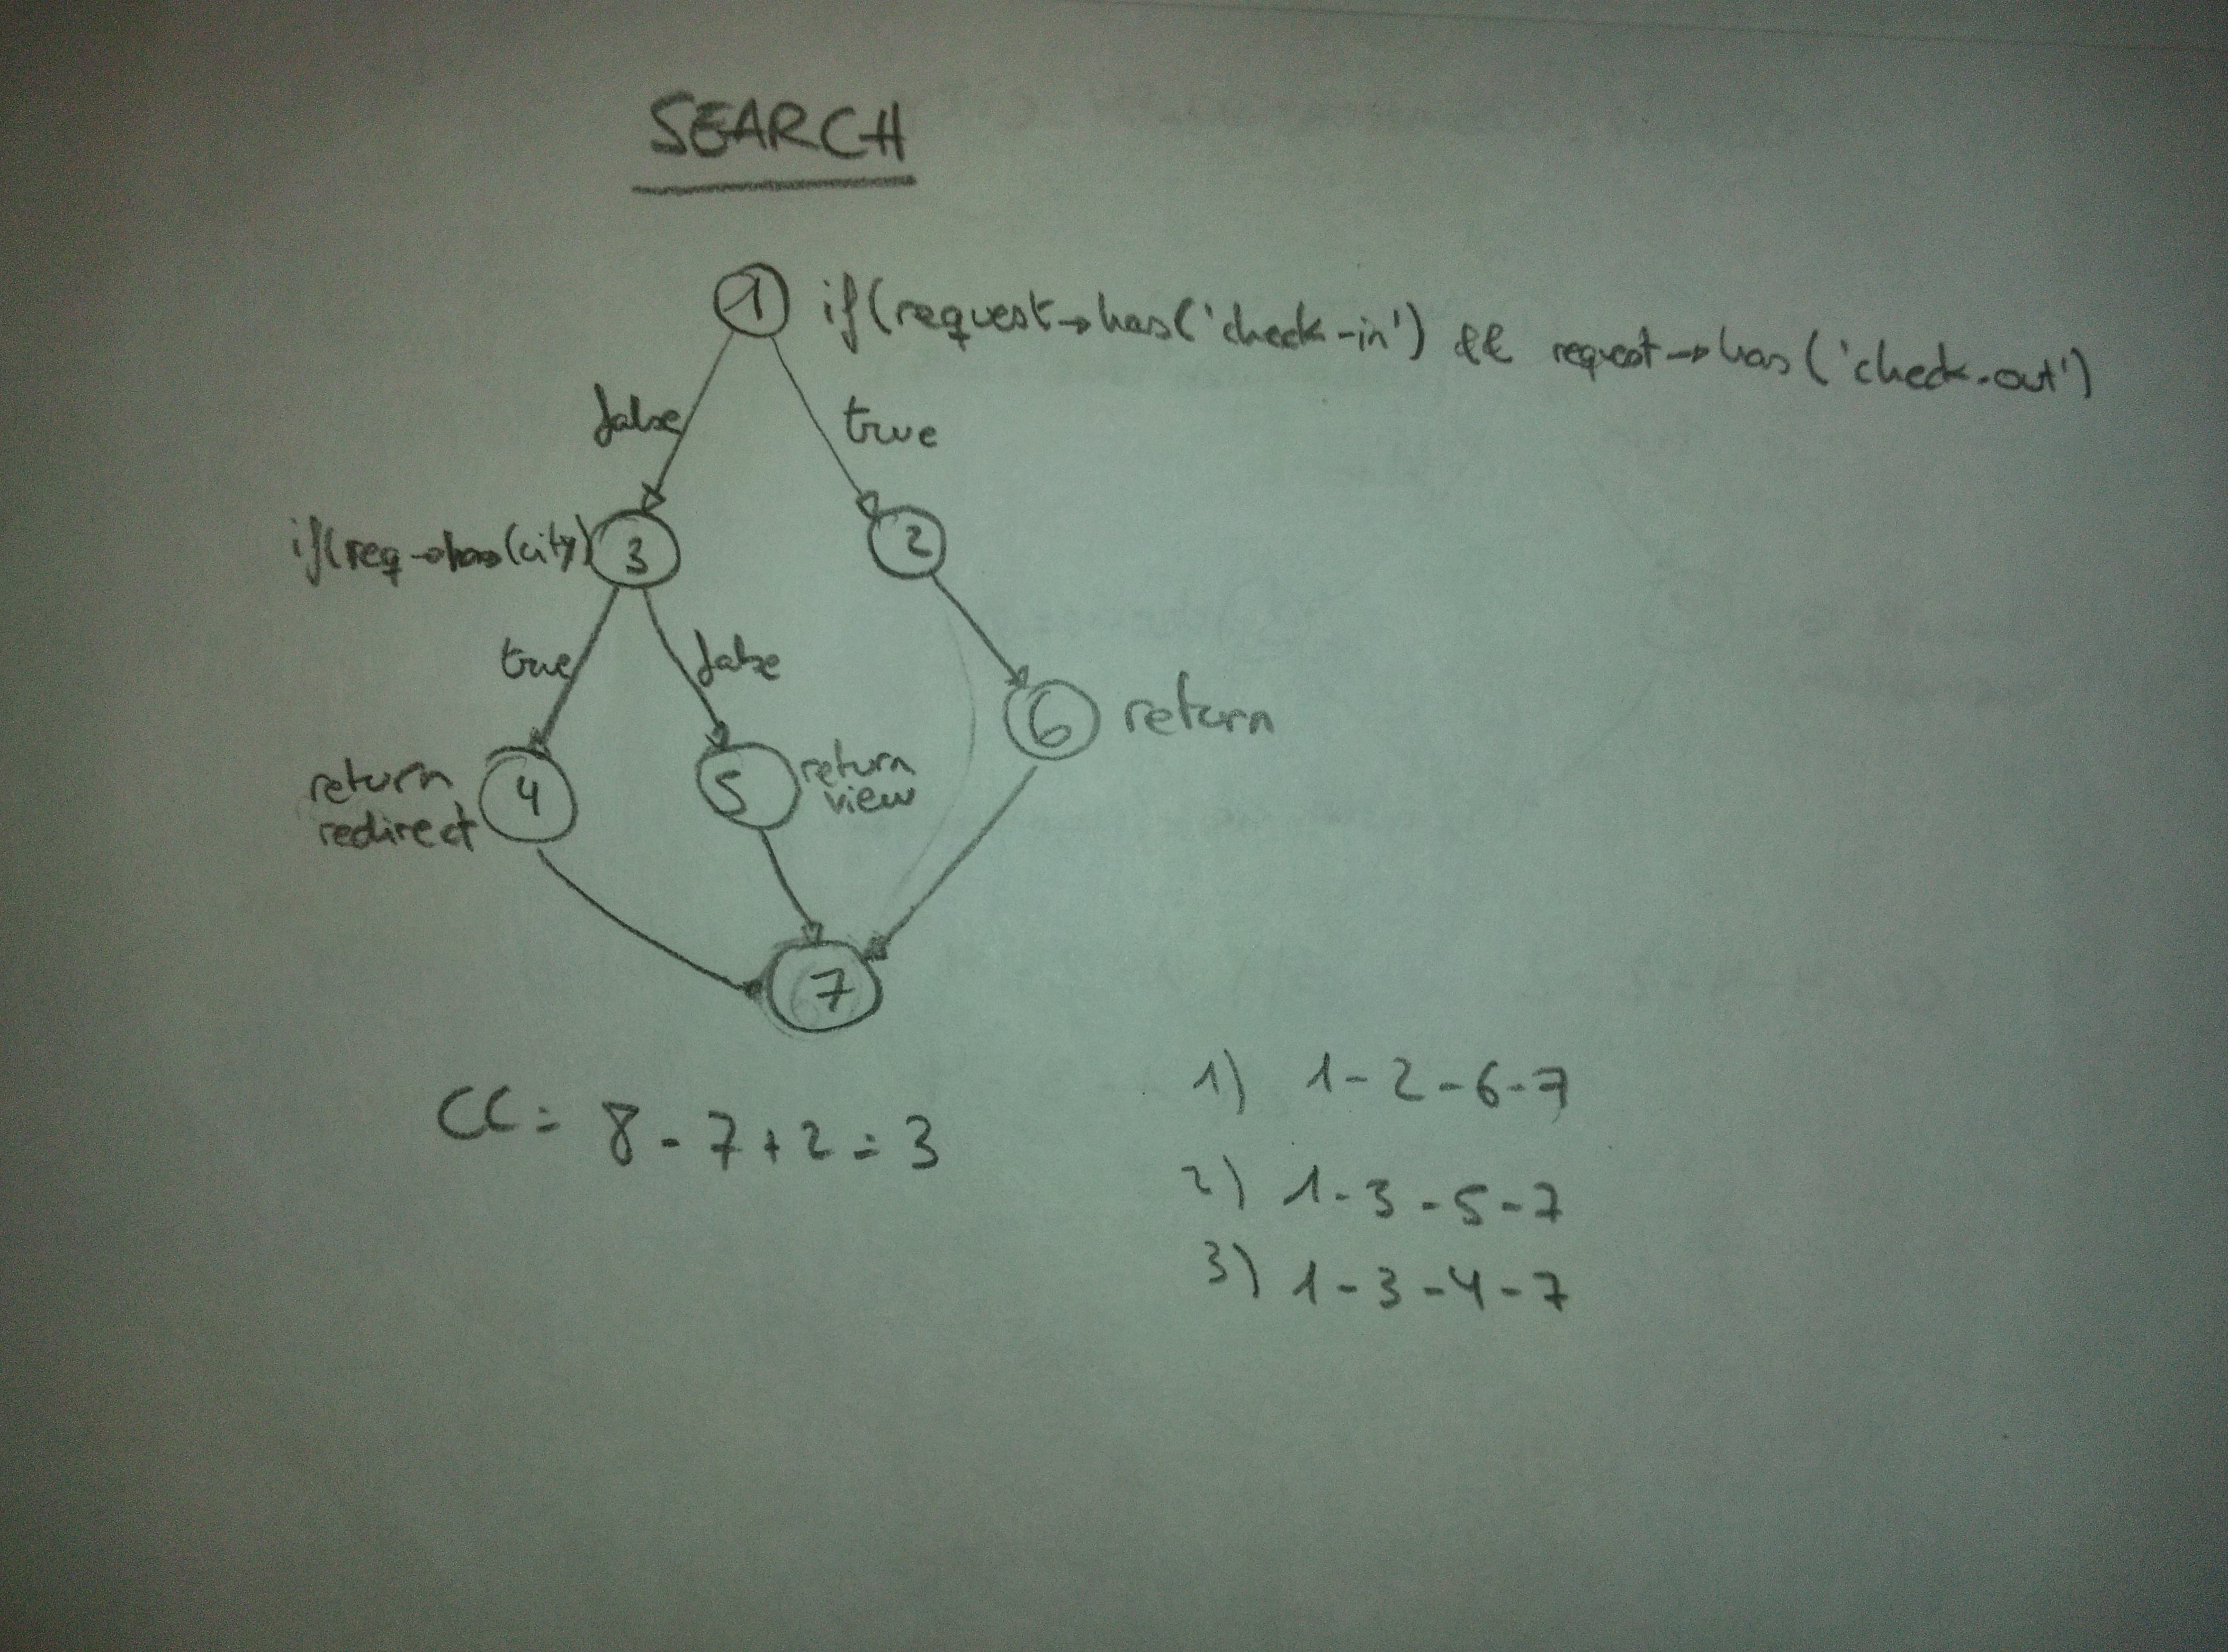 SEARCH
1 if(request→has('check-in') && request→has('check-out')
false true
if(req→has(city) 3 2
true false
6 return
return redirect 4 5 return view
7
CC = 8 - 7 + 2 = 3
1) 1-2-6-7
2) 1-3-5-7
3) 1-3-4-7